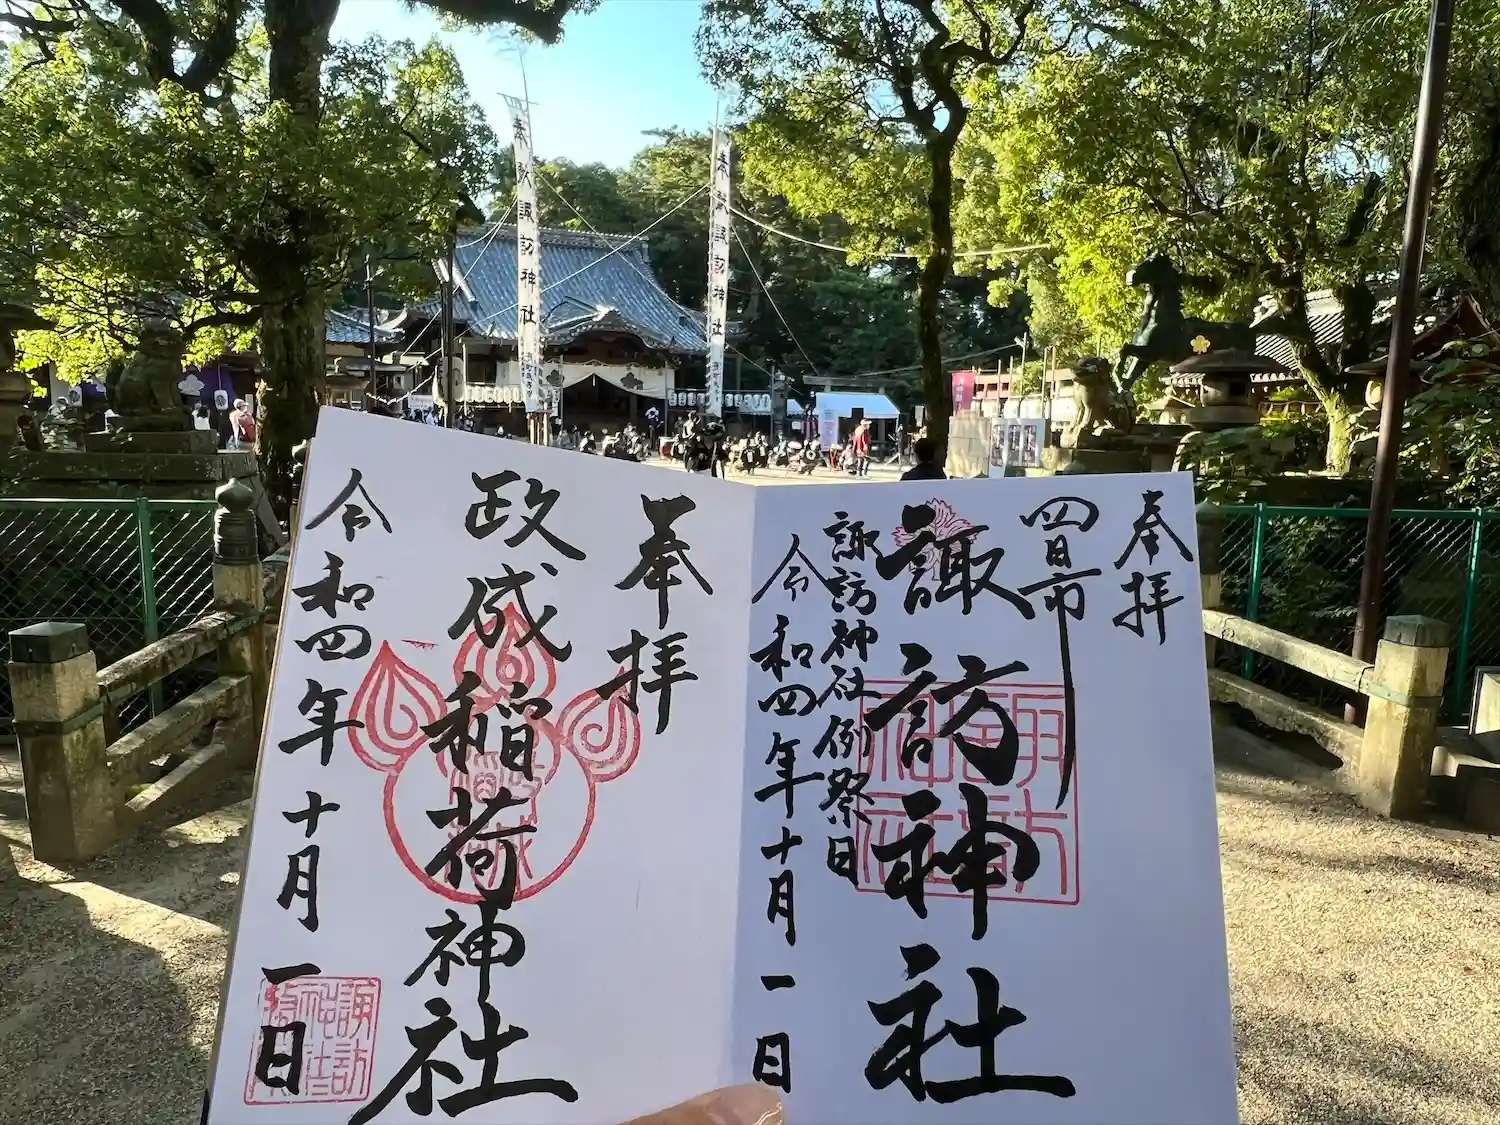 奉献 諏訪神社
諏訪神社
奉拝
四日市
諏訪神社
諏訪神社例祭日
令和四年十月一日
奉拝
政成稲荷神社
令和四年十月一日
諏訪
神社